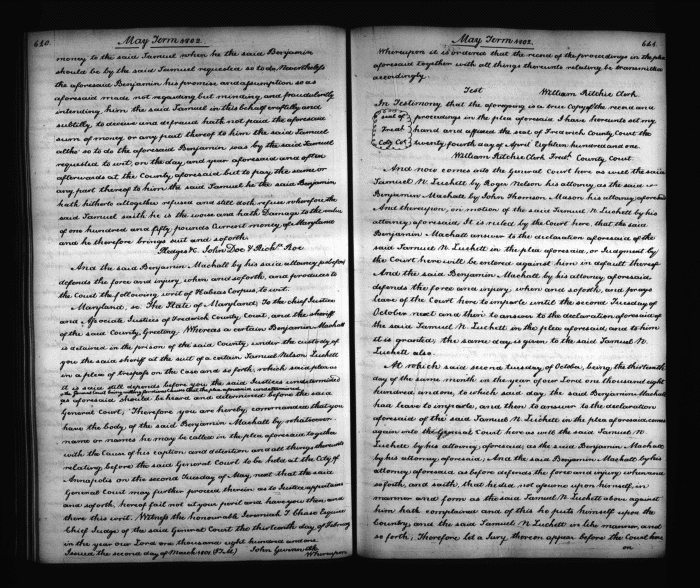 610.
May Term 1802.
money to the said Samuel when he the said Benjamin
should be by the said Samuel requested so to do. Nevertheless
the aforesaid Benjamin his promise and assumption so as
aforesaid made not regarding but minding and fraudulently
intending him the said Samuel in this behalf craftily and
subtilly to deceive and defraud hath not paid the aforesaid
sum of money or any part thereof to him the said Samuel
altho' so to do the aforesaid Benjamin was by the said Samuel
requested to wit, on the day, and year aforesaid and often
afterwards at the County aforesaid but to pay the same or
any part thereof to him the said Samuel he the said Benjamin
hath hitherto altogether refused and still doth refuse wherefore the
said Samuel saith he is the worse and hath Damage to the value
of one hundred and fifty pounds Current money of Maryland
and he therefore brings suit and so forth.
Pledges &c. John Doe & Richd. Roe
And the said Benjamin Machall by his said attorney
defends the force and injury when and so forth, and produces to
the Court the following writ of Habeas Corpus, to wit.
Maryland, sc. The State of Maryland, To the chief Justice
and Associate Justices of Frederick County Court, and the sheriff
of the said County, Greeting. Whereas a certain Benjamin Machall
is detained in the prison of the said County, under the custody of
you the said sheriff at the suit of a certain Samuel Nelson Luckett
in a plea of trespass on the Case and so forth, which said plea as
it is said still depends before you the said Justices undetermined
as aforesaid should be heard and determined before the said
General Court, Therefore you are hereby commanded that you
have the body of the said Benjamin Machall by whatsoever
name or names he may be called in the plea aforesaid together
with the Cause of his caption and detention and all things thereunto
relating, before the said General Court to be held at the City of
Annapolis on the second Tuesday of May next that the said
General Court may further proceed therein as to Justice appertains
and so forth, hereof fail not at your peril and have you then and
there this writ. Witness the honourable Jeremiah T. Chase Esquire
chief Judge of the said General Court the thirteenth day of February
in the year our Lord one thousand eight hundred and one
Issued the second day of March 1801 John Gwinn Clk
Whereupon
May Term 1802.
611.
Whereupon it is ordered that the record of the proceedings in the plea
aforesaid together with all things thereunto relating be transmitted
accordingly.
Test William Ritchie Clerk
In Testimony that the aforegoing is a true Copy of the record and
proceedings in the plea aforesaid I have hereunto set my
hand and affixed the seal of Frederick County Court the
twenty fourth day of April Eighteen hundred and one.
seal of
Fredk
Coty Cot
William Ritchie Clerk Fredk. County Court.
And now comes into the General Court here as well the said
Samuel N. Luckett by Roger Nelson his attorney, as the said
Benjamin Machall by John Thomson Mason his attorney, aforesaid
And thereupon, on motion of the said Samuel N. Luckett by his
attorney, aforesaid It is ruled by the Court here, that the said
Benjamin Machall answer to the declaration aforesaid of the
said Samuel N. Luckett in the plea aforesaid, or Judgment by
the Court here will be entered against him in default thereof
And the said Benjamin Machall by his attorney, aforesaid,
defends the force and injury, when and so forth, and prays
leave of the Court here to imparle until the second Tuesday of
October next and then to answer to the declaration aforesaid of
the said Samuel N. Luckett in the plea aforesaid, and to him
it is granted, the same day is given to the said Samuel N.
Luckett also.
At which said second Tuesday of October, being the thirteenth
day of the same month in the year of our Lord one thousand eight
hundred and one, to which said day the said Benjamin Machall
had leave to imparle, and then to answer to the declaration
aforesaid of the said Samuel N. Luckett in the plea aforesaid, comes
again into the General Court here as well the said Samuel N.
Luckett by his attorney, aforesaid, as the said Benjamin Machall
by his attorney, aforesaid, And the said Benjamin Machall by his
attorney aforesaid as before defends the force and injury, when and
so forth, and saith, that he did not assume upon himself, in
manner and form as the said Samuel N. Luckett above against
him hath complained and of this he puts himself upon the
Country, and the said Samuel N. Luckett in like manner, and
so forth, Therefore let a Jury thereon appear before the Court here
on